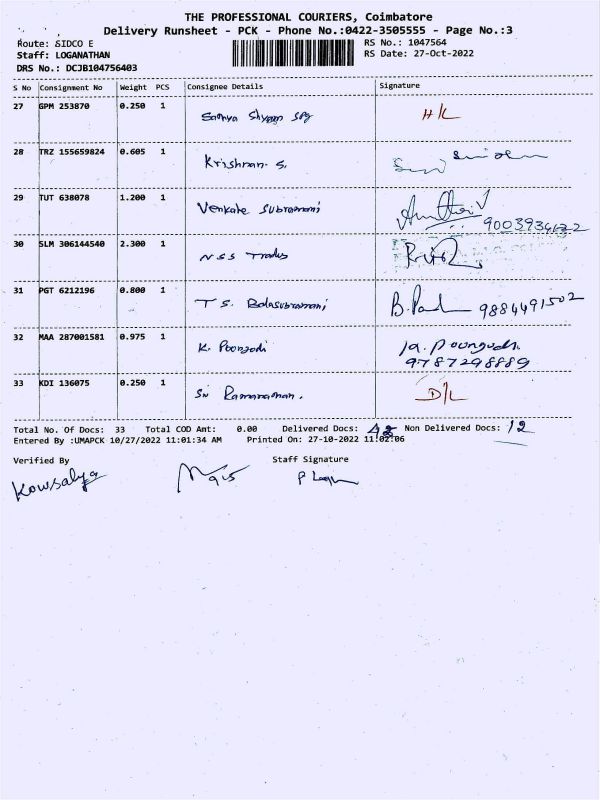 THE PROFESSIONAL COURIERS, Coimbatore
Delivery Runsheet - PCK - Phone No.:0422-3505555 - Page No.:3
Route: SIDCO E RS No.: 1047564
Staff: LOGANATHAN RS Date: 27-Oct-2022
DRS No.: DCJB104756403
S No Consignment No Weight PCS Consignee Details Signature
27 GPM 253870 0.250 1 Sathya Shyam H/L
28 TRZ 155659824 0.605 1 Krishnan. S.
29 TUT 638078 1.200 1 Venkate Subramani
30 SLM 306144540 2.300 1 NSS Trades
31 PGT 6212196 0.800 1 T S. Balasubramani 9884491502
32 MAA 287001581 0.975 1 K. Poongodi
9787298889
33 KDI 136075 0.250 1 Sri Ramanathan. D/L
Total No. Of Docs: 33 Total COD Amt: 0.00 Delivered Docs: Non Delivered Docs: 12
Entered By :UMAPCK 10/27/2022 11:01:34 AM Printed On: 27-10-2022 11:02:06
Verified By Staff Signature
Kowsalya